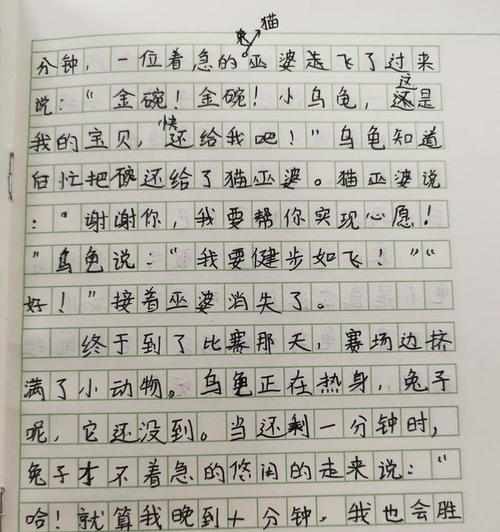 兔 猫
分钟，一位着急的巫婆走飞了过来
说：“金碗！金碗！小乌龟，这是
我的宝贝，快还给我吧！”乌龟知道
白忙把碗还给了猫巫婆。猫巫婆说
：“谢谢你，我要帮你实现心愿！
”乌龟说：“我要健步如飞！”“
好！”接着巫婆消失了。
终于到了比赛那天，赛场边挤
满了小动物。乌龟正在热身，兔子
呢，它还没到。当还剩一分钟时，
兔子才不着急的悠闲的走来说：“
哈！就算我晚到十分钟，我也会胜